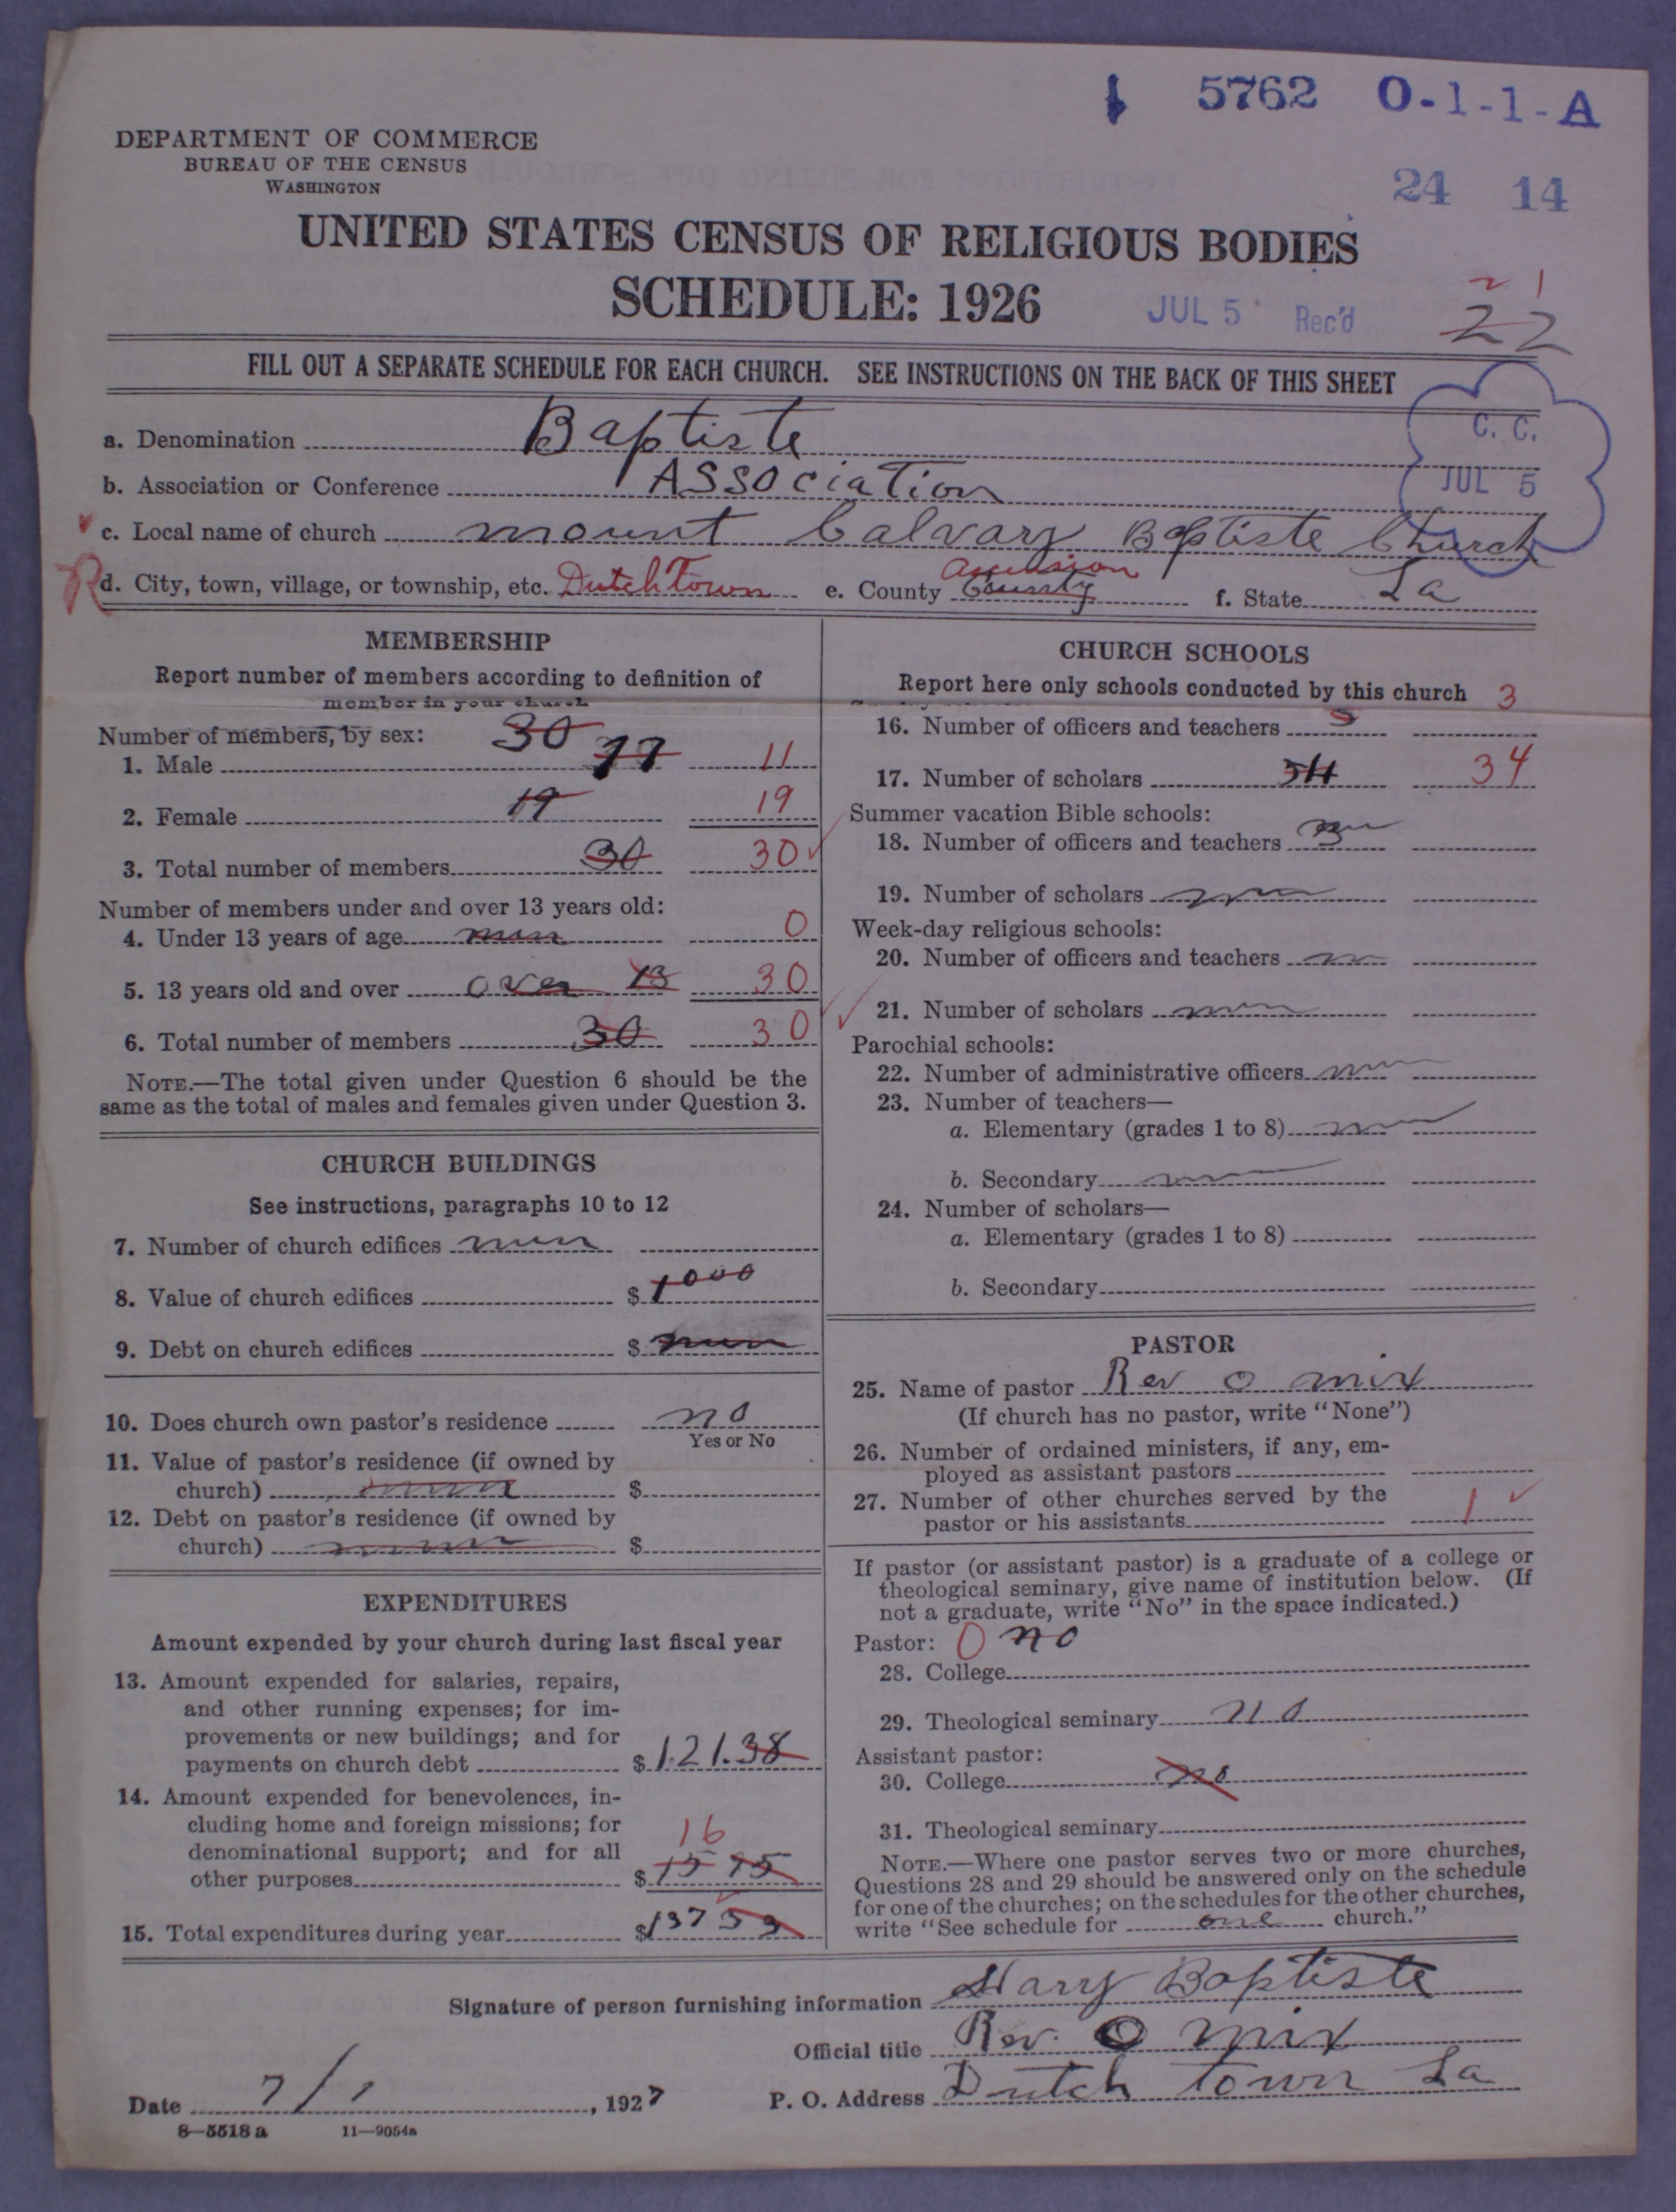 5762 O-1-1-A
DEPARTMENT OF COMMERCE
BUREAU OF THE CENSUS
WASHINGTON
24 14
UNITED STATES CENSUS OF RELIGIOUS BODIES
SCHEDULE: 1926
JUL 5 Rec'd
21
22
FILL OUT A SEPARATE SCHEDULE FOR EACH CHURCH. SEE INSTRUCTIONS ON THE BACK OF THIS SHEET
C. C.
JUL 5
a. Denomination Baptiste
b. Association or Conference Association
c. Local name of church mount Calvary Baptiste Church
R d. City, town, village, or township, etc. Dutch Town e. County County Ascension f. State La
MEMBERSHIP
Report number of members according to definition of
member in your church
Number of members, by sex: 30
1. Male 11 11
2. Female 19 19
3. Total number of members 30 30
Number of members under and over 13 years old:
4. Under 13 years of age nun 0
5. 13 years old and over over 13 30
6. Total number of members 30 30
NOTE.—The total given under Question 6 should be the
same as the total of males and females given under Question 3.
CHURCH BUILDINGS
See instructions, paragraphs 10 to 12
7. Number of church edifices nun
8. Value of church edifices $ 1000
9. Debt on church edifices $ nun
10. Does church own pastor's residence no
Yes or No
11. Value of pastor's residence (if owned by
church) nun $
12. Debt on pastor's residence (if owned by
church) nun $
EXPENDITURES
Amount expended by your church during last fiscal year
13. Amount expended for salaries, repairs,
and other running expenses; for im-
provements or new buildings; and for
payments on church debt $ 121.38
14. Amount expended for benevolences, in-
cluding home and foreign missions; for
denominational support; and for all 16
other purposes $ 15 95
15. Total expenditures during year $ 137 33
CHURCH SCHOOLS
Report here only schools conducted by this church 3
16. Number of officers and teachers
17. Number of scholars 34 34
Summer vacation Bible schools:
18. Number of officers and teachers
19. Number of scholars nun
Week-day religious schools:
20. Number of officers and teachers nun
21. Number of scholars nun
Parochial schools:
22. Number of administrative officers nun
23. Number of teachers—
a. Elementary (grades 1 to 8) nun
b. Secondary nun
24. Number of scholars—
a. Elementary (grades 1 to 8)
b. Secondary
PASTOR
25. Name of pastor Rev O mix
(If church has no pastor, write "None")
26. Number of ordained ministers, if any, em-
ployed as assistant pastors
27. Number of other churches served by the
pastor or his assistants 1
If pastor (or assistant pastor) is a graduate of a college or
theological seminary, give name of institution below. (If
not a graduate, write "No" in the space indicated.)
Pastor: 0 no
28. College
29. Theological seminary no
Assistant pastor:
30. College no
31. Theological seminary
NOTE.—Where one pastor serves two or more churches,
Questions 28 and 29 should be answered only on the schedule
for one of the churches; on the schedules for the other churches,
write "See schedule for one church."
Signature of person furnishing information Mary Baptiste
Official title Rev. O mix
Date 7/1, 1927 P. O. Address Dutch town La
8—5518 a 11—9054a